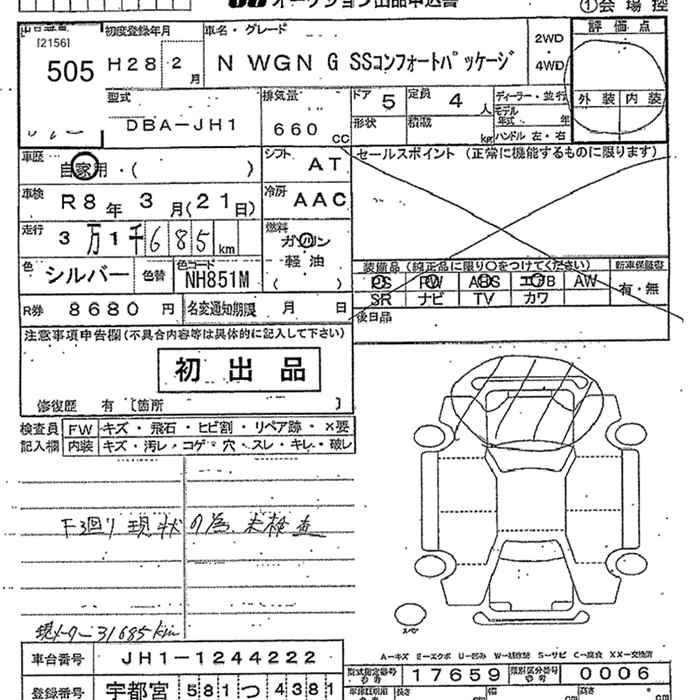 オークション出品申込書
①会場控
[2156]
505
初度登録年月
H28.2月
車名・グレード
N WGN G SSコンフォートパッケージ
2WD
・
4WD
評価点
外装 内装
型式
DBA-JH1
排気量
660cc
ドア 5
定員 4人
ディーラー・並行
モデル年式 年
形状
積載 kg
ハンドル 左・右
車歴
自家用・( )
シフト
AT
セールスポイント (正常に機能するものに限ります)
車検
R8年3月(21日)
冷房
AAC
走行
3万1千685km
燃料
ガソリン
軽油
( )
色
シルバー
色替
色コード
NH851M
装備品 (純正品に限り○をつけてください)
新車保証書
PS PW ABS エアB AW
有・無
SR ナビ TV カワ
R券
8680円
名変通知期限 月 日
後日品
注意事項申告欄(不具合内容等は具体的に記入して下さい)
初出品
修復歴 有 [箇所 ]
検査員
記入欄
FW キズ・飛石・ヒビ割・リペア跡・×要
内装 キズ・汚レ・コゲ・穴・スレ・キレ・破レ
下廻り現状の為、未検査
現メーター31685km
スペア
A-キズ E-エクボ U-凹み W-補修跡 S-サビ C-腐食 XX-交換済
車台番号
JH1-1244222
型式指定番号
17659
類別区分番号
0006
登録番号
宇都宮 581 つ 4381
長さ cm
幅 cm
高さ cm